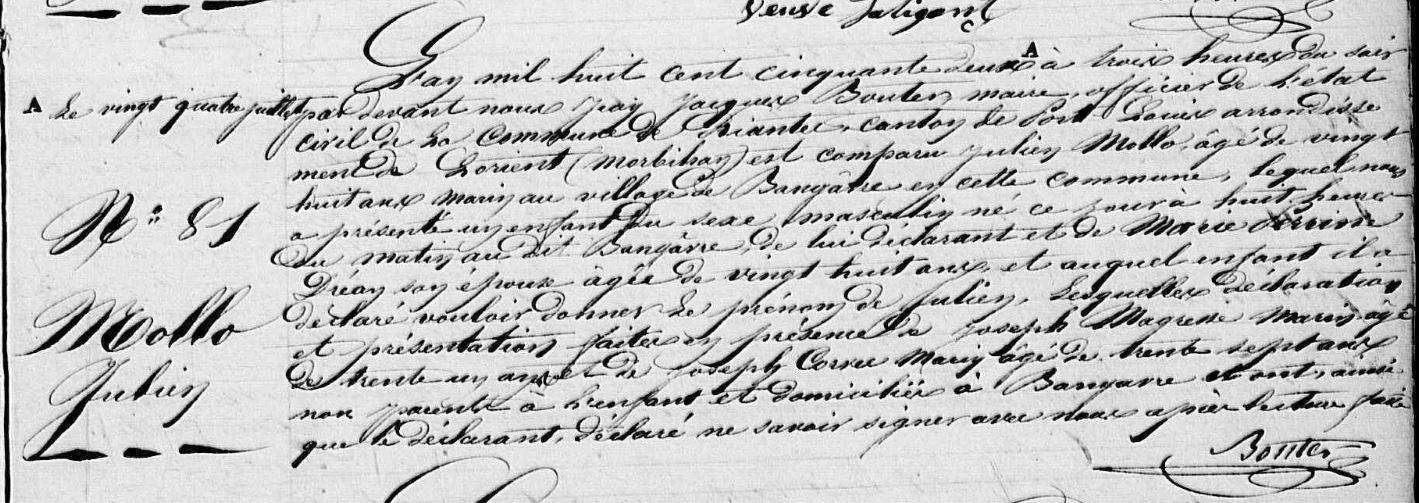 veuve Jaligant
L'an mil huit cent cinquante deux A à trois heures du soir
A Le vingt quatre juillet
par devant nous Jean Jacques Bouter maire, officier de l'état
civil de la commune de Riantec, canton de Port Louis arrondisse
ment de Lorient (Morbihan) est comparu Julien Mollo, âgé de vingt
huit ans marin au village de Bangâvre en cette commune, lequel nous
a présenté un enfant du sexe masculin né ce jour à huit heures
du matin au dit Bangâvre de lui déclarant et de Marie Perrine
Dréan son épouse âgée de vingt huit ans, et auquel enfant il a
déclaré vouloir donner le prénom de Julien, Lesquelles déclaration
et présentation faites en présence de Joseph Magresse marin âgé
de trente un ans et de Joseph Corvec marin âgé de trente sept ans
non parents à l'enfant et domiciliés à Bangavre et ont, ainsi
que le déclarant, déclaré ne savoir signer avec nous après lecture faite
Bouter
N.° 81
Mollo
Julien